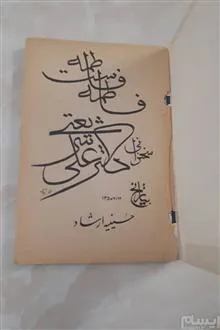 فاطمه
فاطمه است
سخنرانی
دکتر علی شریعتی
بتاریخ
حسینیه ارشاد
ایسام